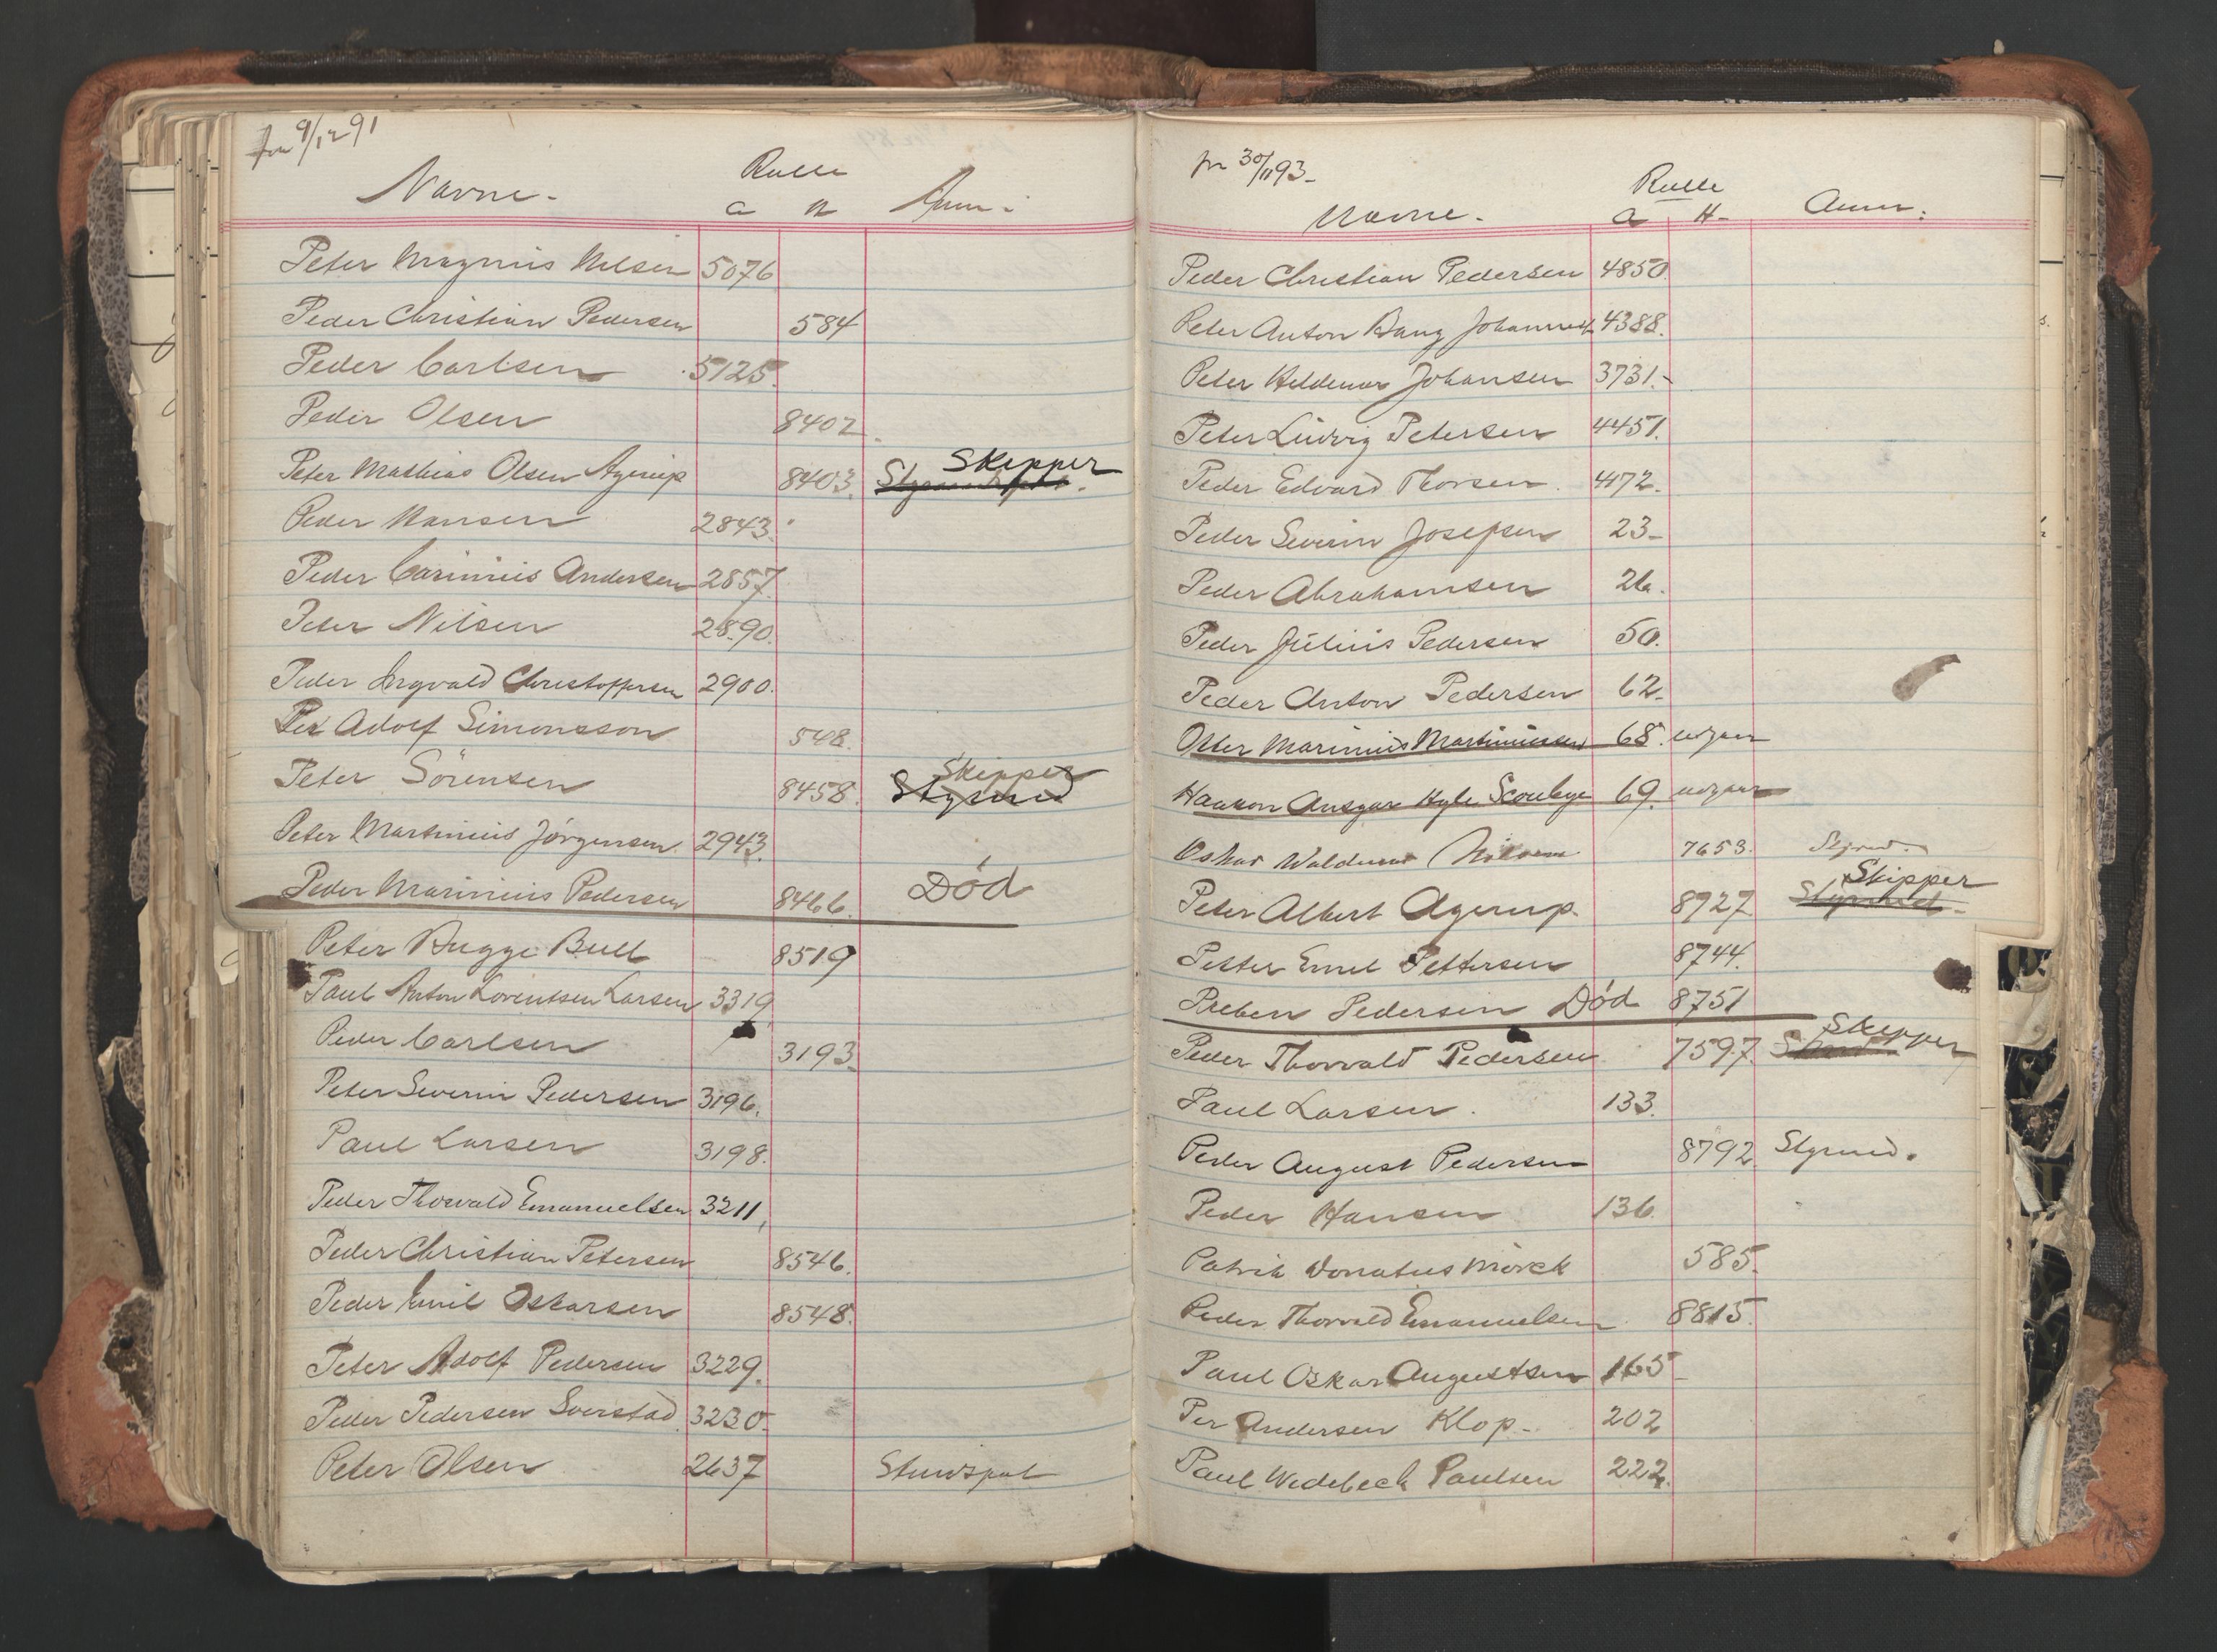 fra 9/12 91
Navne. Rulle Anm.
a H
Peter Magnus Nielsen 5076
Peder Christian Pedersen 584
Peder Carlsen 5125.
Peder Olsen 8402
Peter Mathias Olsen Agerup 8403. Skipper
Peder Hansen 2843.
Peder Carinius Andersen 2857.
Peter Nilsen 2890.
Peder Ingvald Christoffersen 2900.
Per Adolf Simonsson 548.
Peter Sörensen 8458. Styrmd Skipper
Peter Martinius Jörgensen. 2943.
Peder Marinius Pedersen 8466. Död
Peter Bugge Bull 8519
Paul Anton Lorentsen Larsen 3319
Peder Carlsen 3193.
Peter Severin Pedersen 3196.
Paul Larsen 3198.
Peder Thorvald Emanuelsen 3211,
Peder Christian Petersen 8546.
Peder Emil Oskarsen 8548.
Peter Adolf Pedersen 3229.
Peder Pedersen Sverstad 3230.
Peter Olsen 2637
fra 30/11 93.
Navne. Rulle Anm.
a H.
Peder Christian Pedersen 4850.
Peter Anton Bang Johannes 4388.
Peter Heldemar Johansen 3731.
Peter Ludvig Petersen 4451.
Peder Edvard Thorsen. 4172.
Peder Severin Josefsen 23.
Peder Abrahamsen 26.
Peder Julius Pedersen 50.
Peder Anton Pedersen 62.
Otter Marinius Martiniussen 68. udgaar
Haakon Ansgar Hyle Scouboye 69. udgaar
Oskar Waldemar Nilsen 7653. Styrmd.
Peter Albert Agerup. 8927 Styrmd. Skipper
Petter Emil Pettersen 8744.
Preben Pedersen Död 8751
Peder Thorvald Pedersen 7597. Skipper
Paul Larsen. 133.
Peder August Pedersen 8792. Styrmd.
Peder Hansen 136.
Patrik Donatus Mörck 585.
Peder Thorvald Emanuelsen. 8815.
Paul Oskar Augustsen 165
Per Andersen Klop. 202
Paul Wedebeck Paulsen 222.